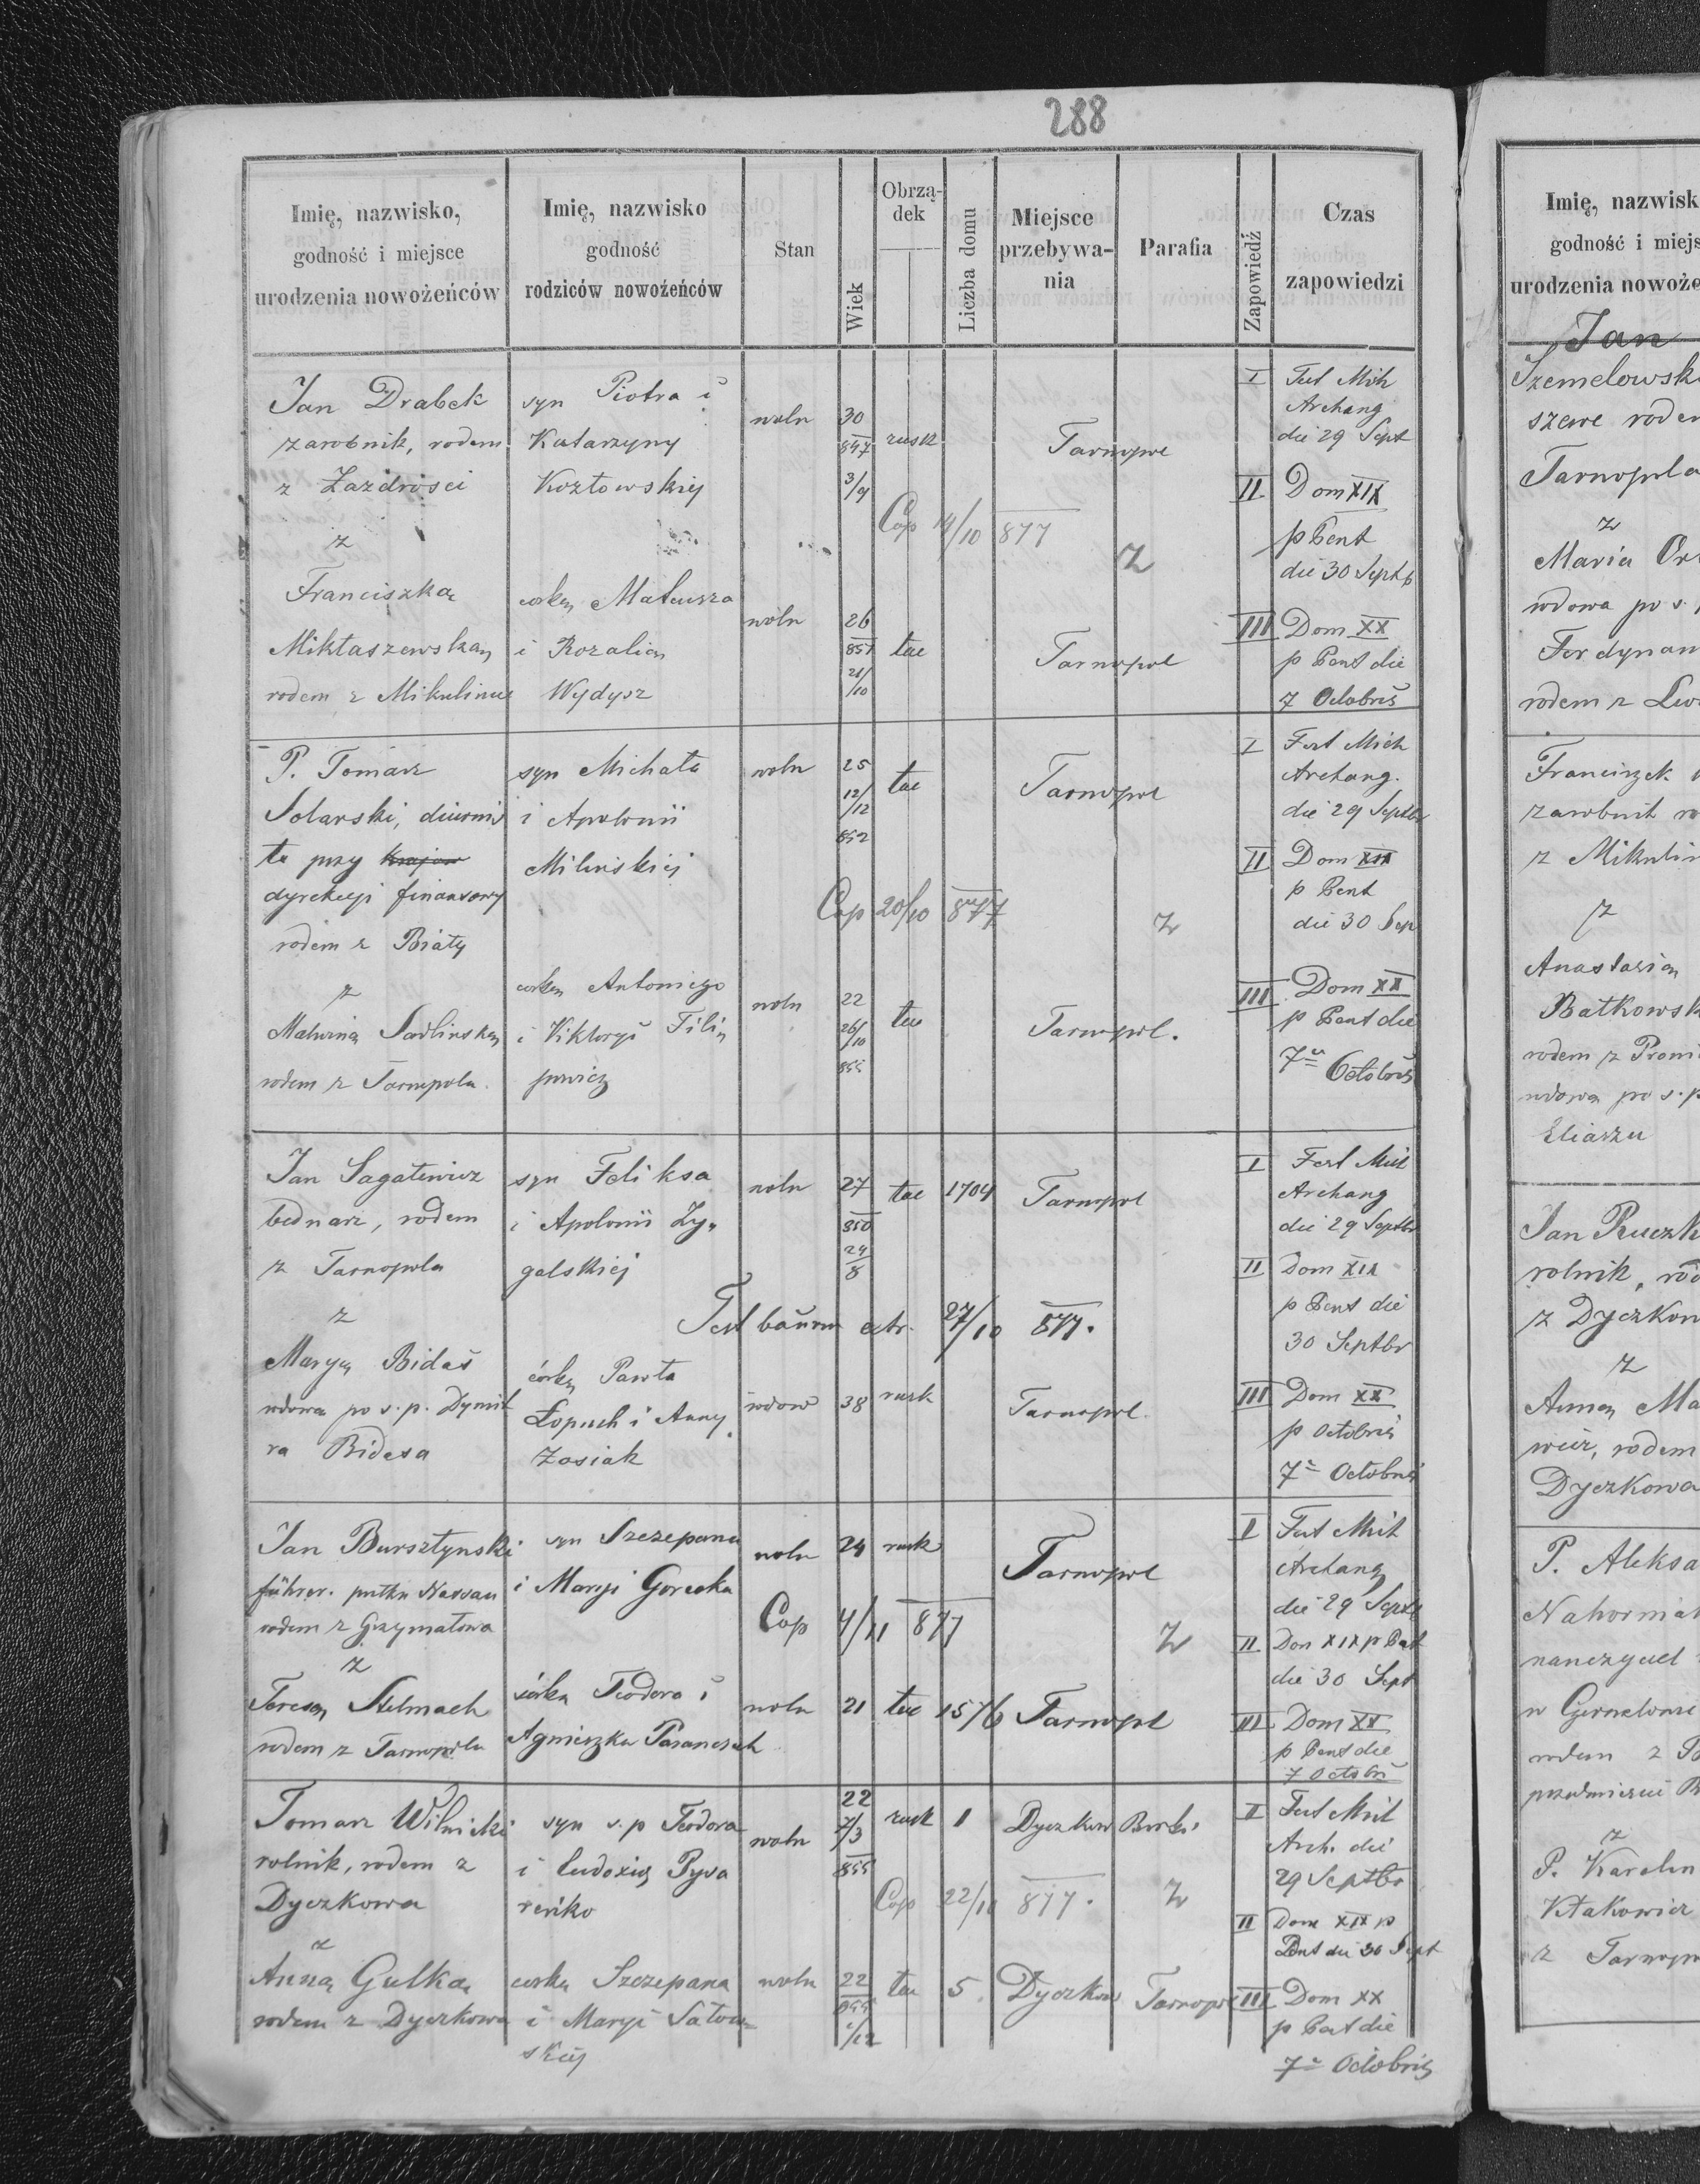 288
Imię, nazwisko,
godność i miejsce
urodzenia nowożeńców
Imię, nazwisko
godność
rodziców nowożeńców
Stan
Wiek
Obrzą-
dek
Liczba domu
Miejsce
przebywa-
nia
Parafia
Zapowiedź
Czas
zapowiedzi
Jan Drabek
zarobnik, rodem
z Zazdrości
z
Franciszką
Mikłaszewską
rodem z Mikuliniec
syn Piotra i
Katarzyny
Kozłowskiej
córką Mateusza
i Rozalii
Wydysz
woln
woln
30
847
3/9
26
851
21/10
rusk
łac
Cop 14/10 877
Tarnopol
z
Tarnopol
I
Fest Mich
Archang
die 29 Sept
II
Dom XIX
p Pent
die 30 Septb
III
Dom XX
p Pent die
7 Octobris
P. Tomasz
Solarski, diurnis
ta przy krajow
dyrekcji finansowej
rodem z Biały
z
Malwiną Sadlińską
rodem z Tarnopola
syn Michała
i Apolonii
Milińskiej
córką Antoniego
i Viktoryi Fili„
powicz
woln
woln
25
12/12
852
22
26/10
855
łac
łac
Cop 20/10 877
Tarnopol
z
Tarnopol.
I
Fest Mich
Archang.
die 29 Septbr
II
Dom XIX
p Pent
die 30 Sep
III
Dom XX
p Pent die
7 Octobris
Jan Sagatewicz
bednarz, rodem
z Tarnopola
z
Maryą Bidaś
wdowa po s. p. Dymit
ra Bidasa
syn Feliksa
i Apolonii Zy„
galskiej
córką Pawła
Łopuch i Anny
Zosiak
woln
wdow
27
850
24/8
38
łac
rusk
1704
Test bannm extr. 27/10 877.
Tarnopol
Tarnopol.
I
Fest Mich
Archang
die 29 Septbr
II
Dom XIX
p Pent die
30 Septbr
III
Dom XX
p Octobris
7 Octobris
Jan Bursztynski
führer. pułku Nassau
rodem z Grzymałowa
z
Teresą Stelmach
rodem z Tarnopola
syn Szczepana
i Maryi Gorecka
córką Teodora i
Agnieszka
woln
woln
24
21
rusk
łac
1576
Cop 4/11 877
Tarnopol
z
Tarnopol
I
Fest Mich
Archang
die 29 Septb
II
Dom XIX p Pent
die 30 Sept
III
Dom XX
p Pent die
7 Octobr
Tomasz Wilnicki
rolnik, rodem z
Dyczkowa
z
Anną Gulką
rodem z Dyczkowa
syn s. p Teodora
i Eudoxii Pysa
reńko
córką Szczepana
i Maryi Satow=
skiej
woln
woln
22
7/3
855
22
855
1/12
rusk
łac
1
5.
Cop 22/10 877.
Dyczkow
Borki
z
Dyczkow
Tarnopol
II
Fest Mich
Arch. die
29 Septbr
II
Dom XIX p
Pent die 30 Sept
III
Dom XX
p Pent die
7 Octobris
Imię, nazwisk
godność i miejs
urodzenia nowoże
Jan
Szemelowski
szewc rodem
Tarnopola
z
Maria
wdowa po s. p
Ferdynan
rodem z Lwo
Franciszek
zarobnik ro
z Mikulin
z
Anastazią
Batkowsk
rodem z
wdowa po s. p
Eliaszu
Jan
rolnik, rod
z Dyczkow
z
Anną Ma
wicz, rodem
Dyczkowa
P. Aleksa
Nahorniak
nauczyciel
w
rodem z
przedmieściu
z
P. Karolin
z Tarnopo